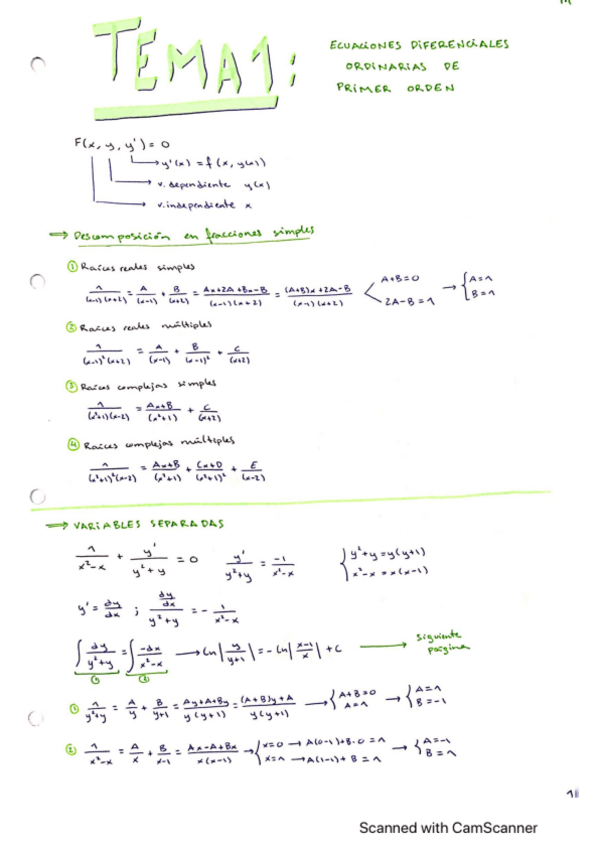 TEMA 1:
ECUACIONES DIFERENCIALES
ORDINARIAS DE
PRIMER ORDEN
F(x, y, y') = 0
y'(x) = f(x, y(x))
v. dependiente y(x)
v. independiente x
⇒ Descomposición en fracciones simples
① Raíces reales simples
1/((x-1)(x+2)) = A/(x-1) + B/(x+2) = (Ax+2A+Bx-B)/((x-1)(x+2)) = ((A+B)x+2A-B)/((x-1)(x+2)) < A+B=0 2A-B=1 → { A=1 B=1
② Raíces reales múltiples
1/((x-1)²(x+2)) = A/(x-1) + B/(x-1)² + C/(x+2)
③ Raíces complejas simples
1/((x²+1)(x-2)) = (Ax+B)/(x²+1) + C/(x+2)
④ Raíces complejas múltiples
1/((x²+1)²(x-2)) = (Ax+B)/(x²+1) + (Cx+D)/(x²+1)² + E/(x-2)
⇒ VARIABLES SEPARADAS
1/(x²-x) + y'/(y²+y) = 0 y'/(y²+y) = -1/(x²-x) { y²+y = y(y+1) x²-x = x(x-1)
y' = dy/dx ; (dy/dx)/(y²+y) = - 1/(x²-x)
∫ dy/(y²+y) = ∫ -dx/(x²-x) → ln|y/(y+1)| = -ln|(x-1)/x| + C → siguiente página
① ②
① 1/(y²+y) = A/y + B/(y+1) = (Ay+A+By)/(y(y+1)) = ((A+B)y+A)/(y(y+1)) → { A+B=0 A=1 → { A=1 B=-1
② 1/(x²-x) = A/x + B/(x-1) = (Ax-A+Bx)/(x(x-1)) → { x=0 → A(0-1)+B·0=1 x=1 → A(1-1)+B=1 → { A=-1 B=1
1
Scanned with CamScanner